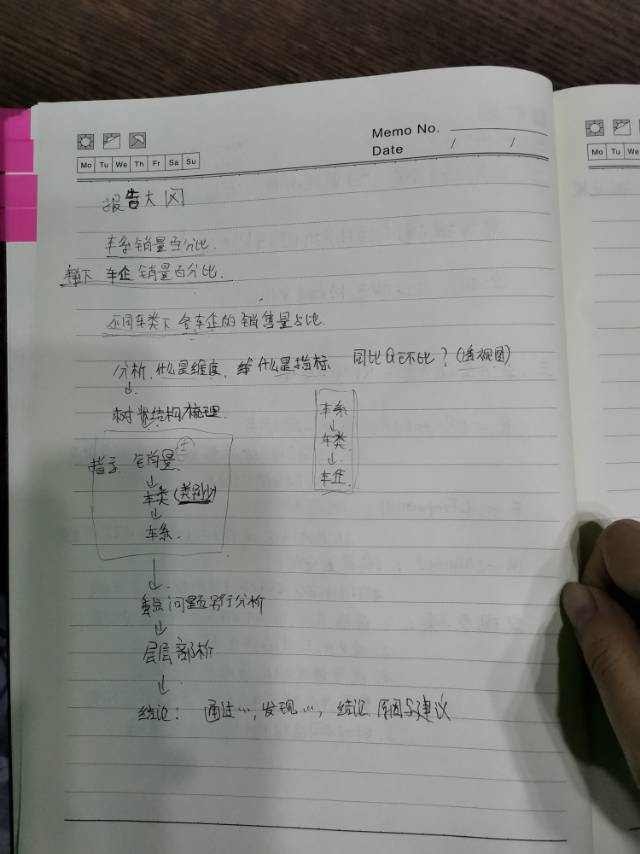 Memo No.
Date / /
Mo Tu We Th Fr Sa Su
Mo Tu We
报告大冈
车系销量百分比.
车企 销量百分比.
不同车类下 各车企的销售量占比
分析, 什么是维度, 给什么是指标 同比&环比? (透视图)
↓
树状结构梳理.
车系
↓
车类
↓
车企
指标 销量
↓
车类 (类别)
↓
车系
↓
重点问题另行分析
↓
层层部析
↓
结论: 通过…, 发现…, 结论 原因与建议